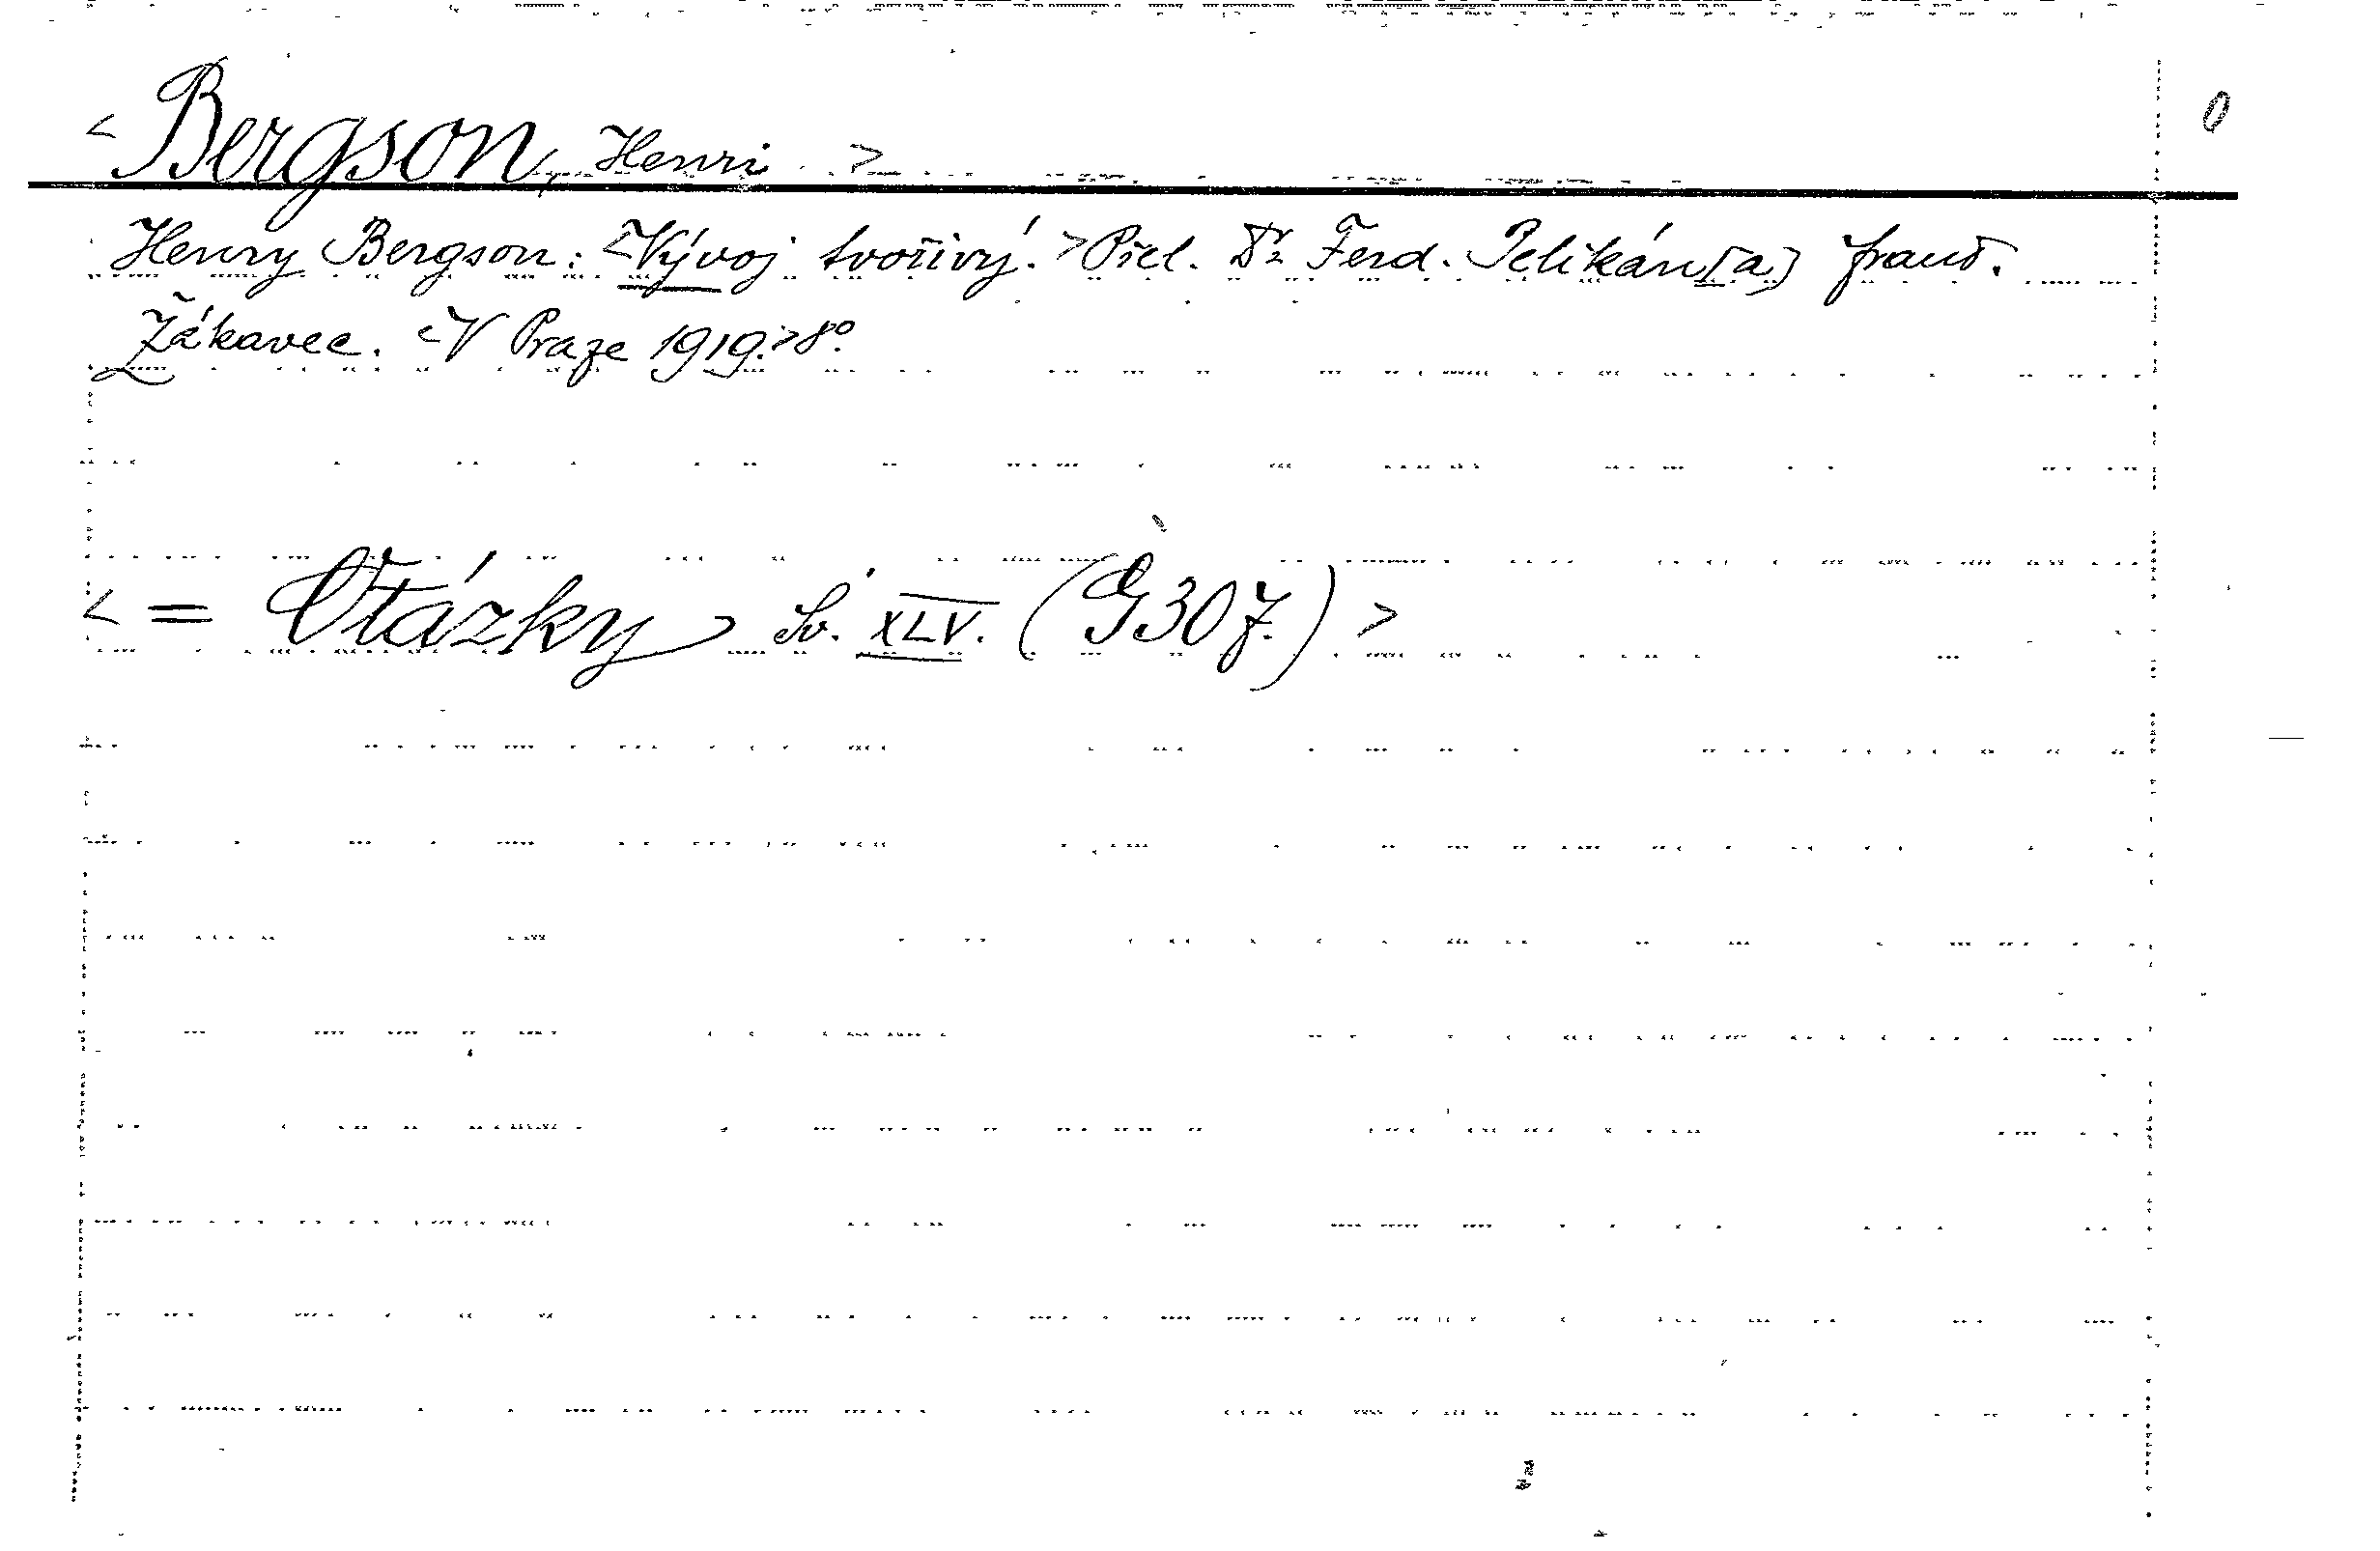 < Bergson, Henri > 0
Henry Bergson: <Vývoj tvořivý.> Přel. Dr Ferd. Pelikán[a]
Žákavec. <V Praze 1919.> 8º.
< = Otázky Sv. XLV. (G307.) >